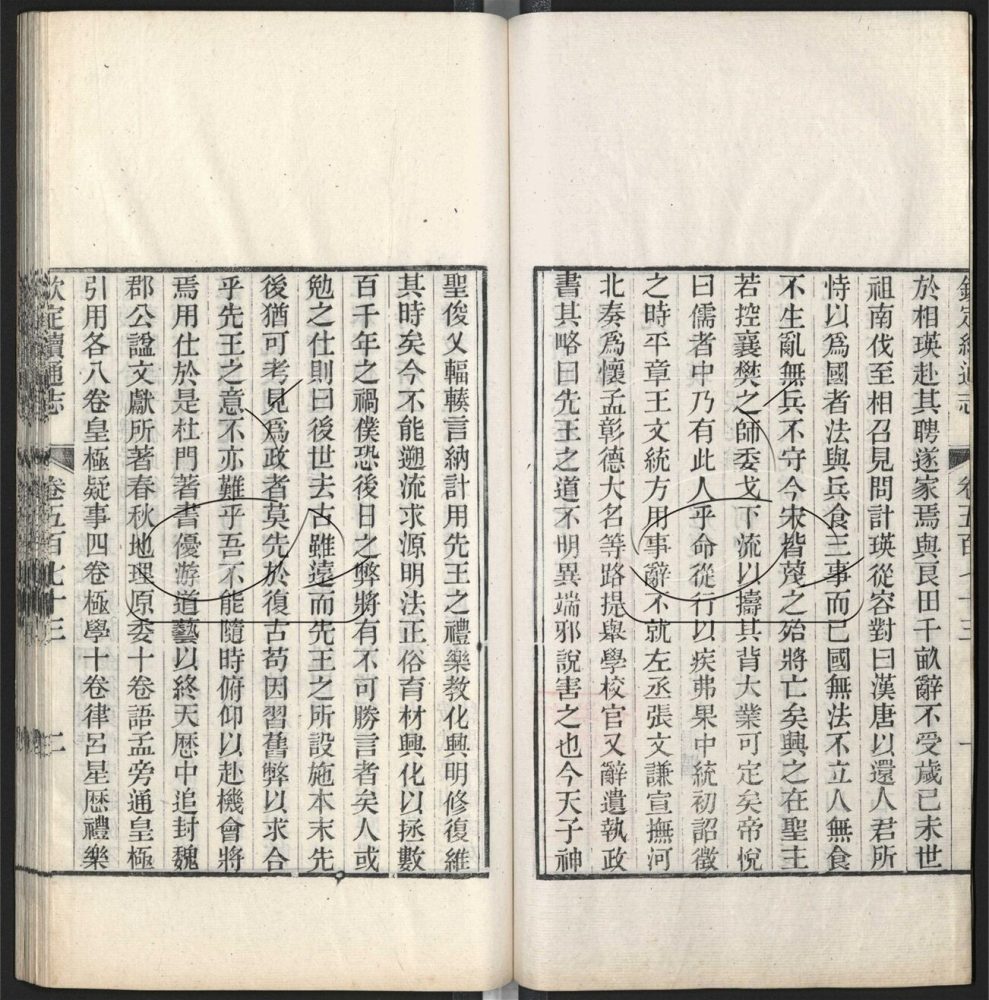 欽定續通志 卷五百七十三 一
於相瑛赴其聘遂家焉與良田千畝辭不受歲己未世
祖南伐至相召見問計瑛從容對曰漢唐以還人君所
恃以爲國者法與兵食三事而已國無法不立人無食
不生亂無兵不守今宋皆蔑之殆將亡矣興之在聖主
若控襄樊之師委戈下流以擣其背大業可定矣帝悅
曰儒者中乃有此人乎命從行以疾弗果中統初詔徵
之時平章王文統方用事辭不就左丞張文謙宣撫河
北奏爲懷孟彰德大名等路提舉學校官又辭遺執政
書其略曰先王之道不明異端邪說害之也今天子神
聖俊乂輻輳言納計用先王之禮樂教化興明修復維
其時矣今不能遡流求源明法正俗育材興化以拯數
百千年之禍僕恐後日之弊將有不可勝言者矣人或
勉之仕則曰後世去古雖遠而先王之所設施本末先
後猶可考見爲政者莫先於復古苟因習舊弊以求合
乎先王之意不亦難乎吾不能隨時俯仰以赴機會將
焉用仕於是杜門著書優游道藝以終天歷中追封魏
郡公諡文獻所著春秋地理原委十卷語孟旁通皇極
引用各八卷皇極疑事四卷極學十卷律呂星歷禮樂
欽定續通志 卷五百七十三 二